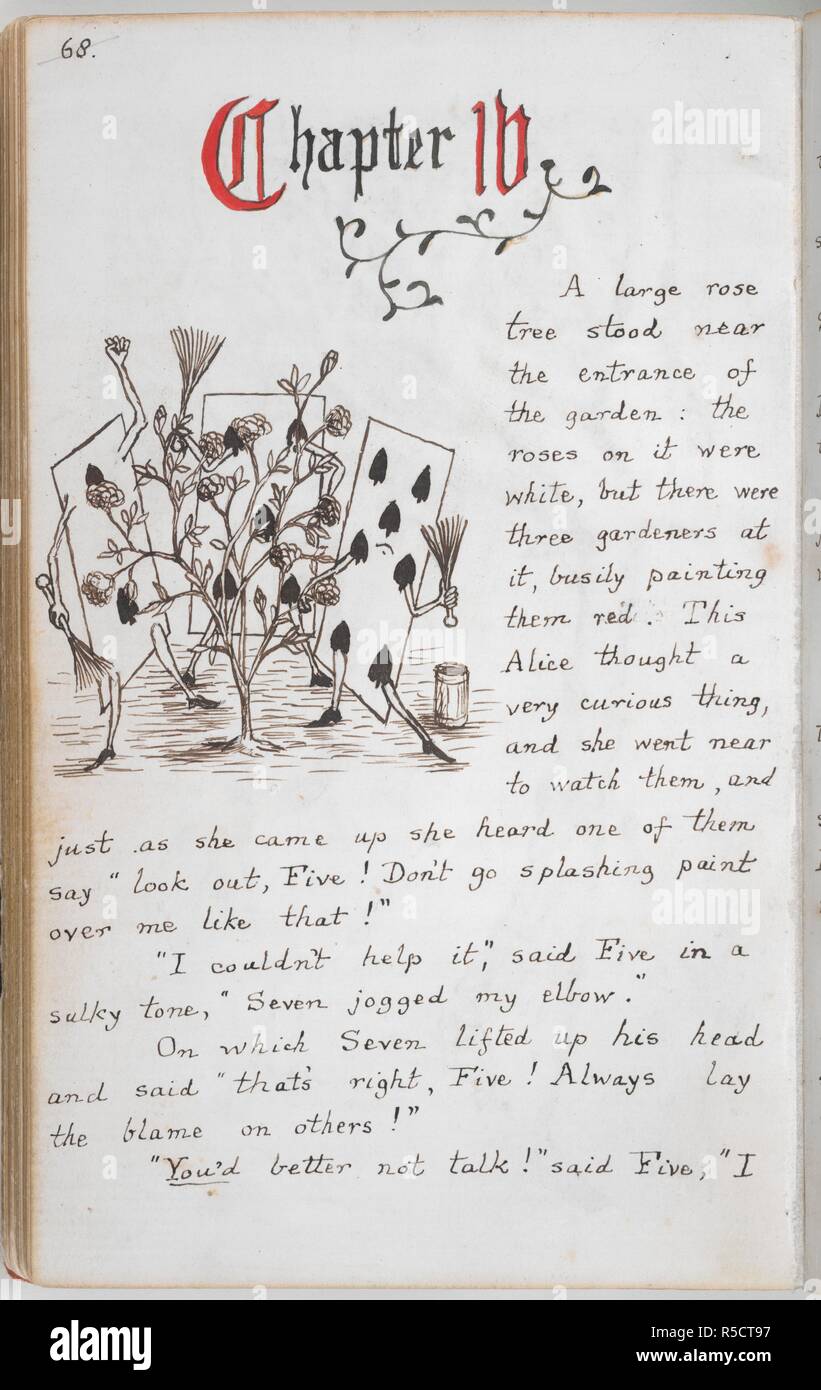 68.
Chapter IV
A large rose
tree stood near
the entrance of
the garden : the
roses on it were
white, but there were
three gardeners at
it, busily painting
them red. This
Alice thought a
very curious thing,
and she went near
to watch them, and
just as she came up she heard one of them
say "look out, Five! Don't go splashing paint
over me like that!"
"I couldn't help it," said Five in a
sulky tone, "Seven jogged my elbow."
On which Seven lifted up his head
and said "that's right, Five! Always lay
the blame on others!"
"You'd better not talk!" said Five, "I
alamy
Image ID: R5CT97
www.alamy.com